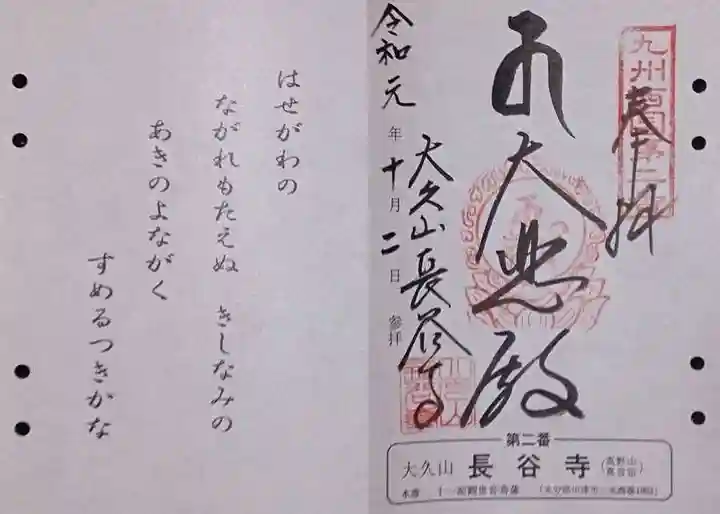 奉拝
大悲殿
大久山長谷寺
令和元年十月二日参拝
第二番
大久山 長谷寺 (高野山真言宗)
本尊 十一面観世音菩薩
はせがわの
ながれもたえぬ きしなみの
あきのよながく
すめるつきがな